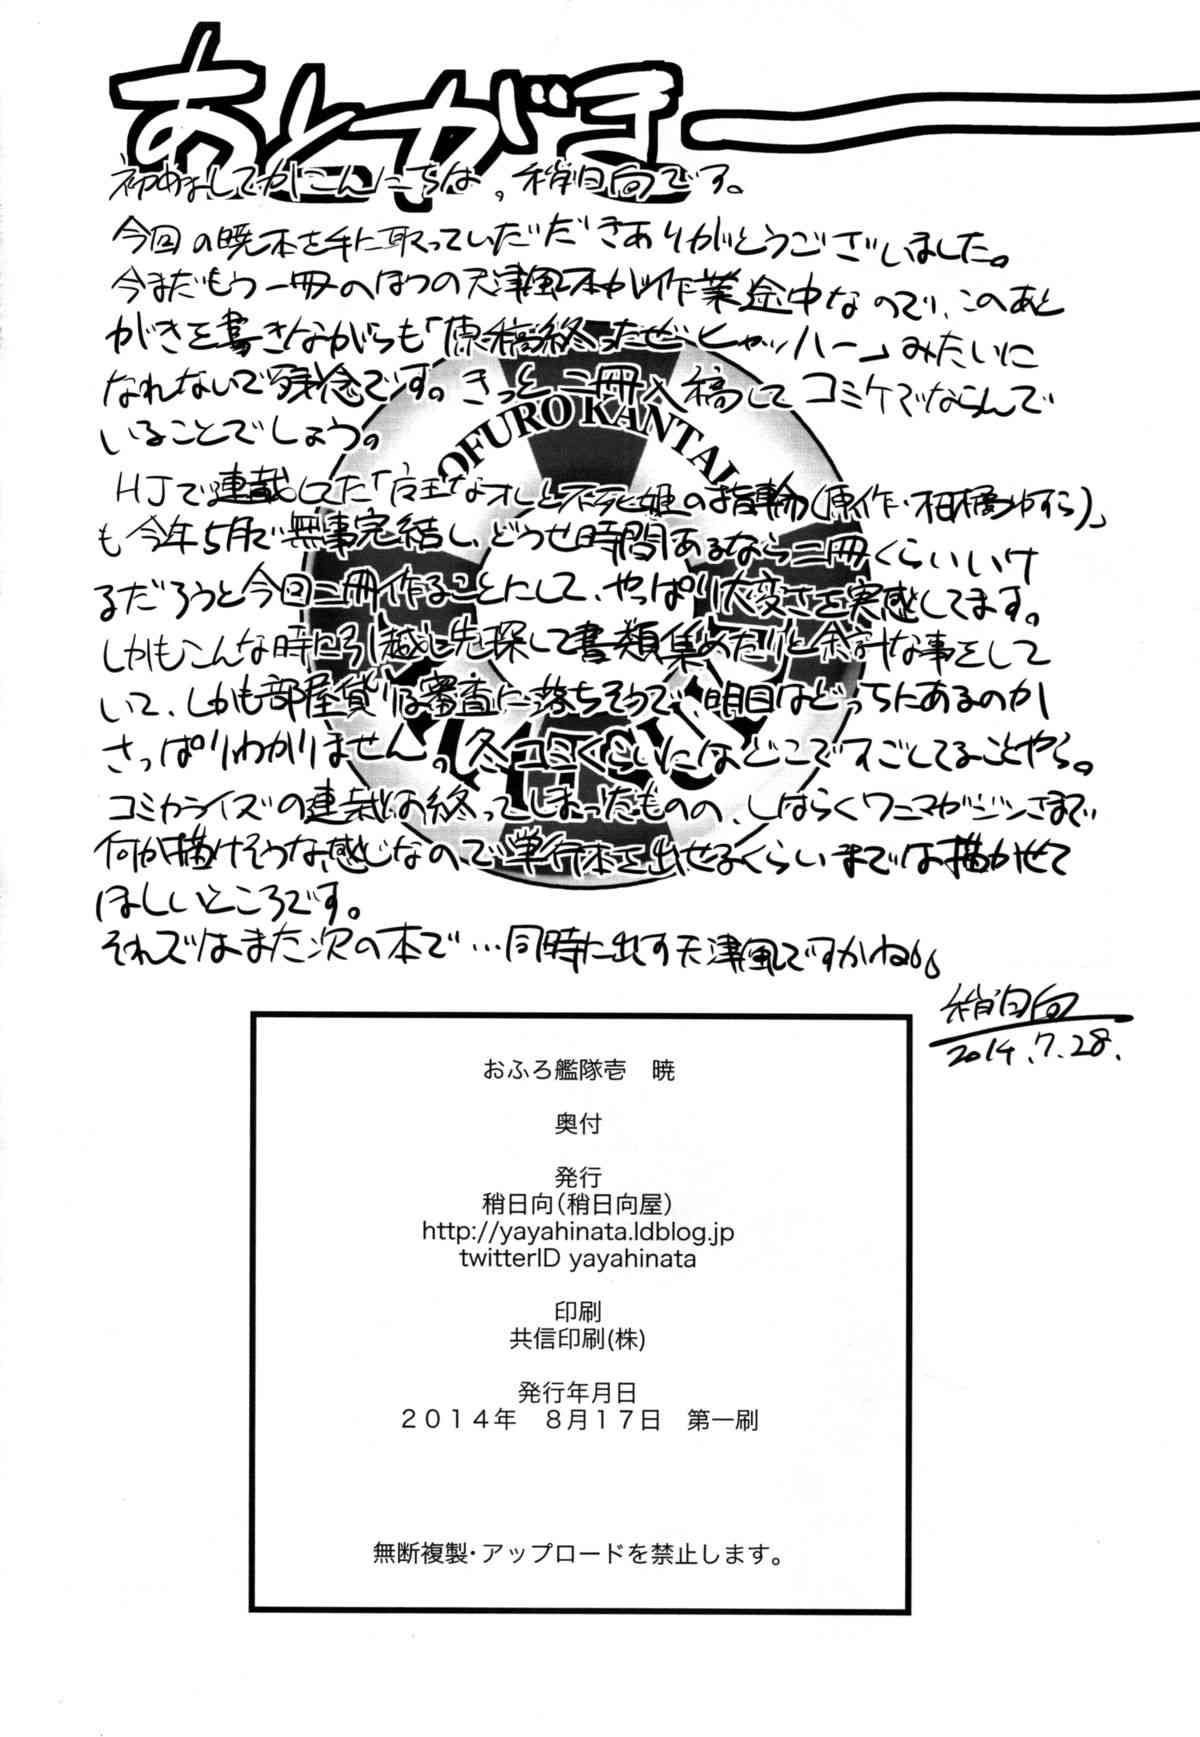 あとがき
初めましてかこんにちは、稍日向です。
今回の暁本を手に取っていただきありがとうございました。
今まだもう一冊のほうの天津風本が作業途中なので、このあと
がきを書きながらも「原稿終ったぜーヒャッハー」みたいに
なれないで残念です。きっと二冊入稿してコミケでならんで
いることでしょう。
OFURO KANTAI
HJで連載してた「店主なオレと不死姫の指輪(原作・柑橘ゆすら)」
も今年5月で無事完結し、どうせ時間あるなら二冊くらいいけ
るだろうと今回二冊作ることにして、やっぱり大変さを実感してます。
しかもこんな時に引越し先探して書類集めたりと余計な事をして
いて、しかも部屋貸りは審査に落ちそうで、明日はどっちにあるのか
さっぱりわかりません。冬コミくらいにはどこですごしてることやら。
コミカライズの連載は終ってしまったものの、しばらくワニマガジンさまで
何か描けそうな感じなので単行本を出せるくらいまでは描かせて
ほしいところです。
それではまた次の本で…同時に出す天津風ですかね。
稍日向
2014.7.28.
おふろ艦隊壱　暁
奥付
発行
稍日向(稍日向屋)
http://yayahinata.ldblog.jp
twitterID yayahinata
印刷
共信印刷(株)
発行年月日
2014年　8月17日　第一刷
無断複製・アップロードを禁止します。